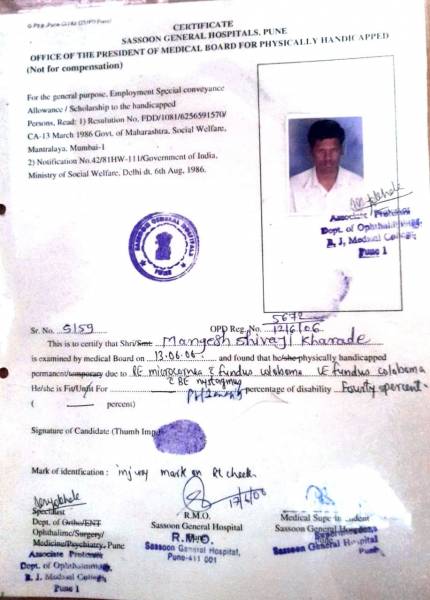 CERTIFICATE
SASSOON GENERAL HOSPITALS, PUNE
OFFICE OF THE PRESIDENT OF MEDICAL BOARD FOR PHYSICALLY HANDICAPPED
(Not for compensation)
For the general purpose, Employment Special conveyance
Allowance / Scholarship to the handicapped
Persons, Read: 1) Resulution No. FDD/1081/6256591570/
CA-13 March 1986 Govt. of Maharashtra, Social Welfare,
Mantralaya, Mumbai-1
2) Notification No.42/81HW-111/Government of India,
Ministry of Social Welfare, Delhi dt. 6th Aug, 1986.
Associate Professor
Dept. of Ophthalmology
B. J. Medical College
Pune 1
SASSOON GENERAL HOSPITALS
PUNE
5672
Sr. No. 5159 OPD Reg. No. 12/6/06
This is to certify that Shri/Smt. Mangesh Shivaji Kharade
is examined by medical Board on 13.06.06 and found that he/she physically handicapped
permanent/temporary due to RE microcornea fundus coloboma LE fundus coloboma
BE nystagmus
He/she is Fit/Unfit For percentage of disability Fourty percent.
( percent)
Signature of Candidate (Thumb
Mark of identification : injury mark on Rt cheek.
17/6/06
Specialist
Dept. of Ortho/ENT
Ophthalmic/Surgery/
Medicine/Psychiatry, Pune
Associate Professor
Dept. of Ophthalmology
B. J. Medical College
Pune 1
R.M.O.
Sassoon General Hospital
R.M.O.
Sassoon General Hospital,
Pune-411 001
Medical
Sassoon General
Superintendent
Sassoon General Hospital
Pune